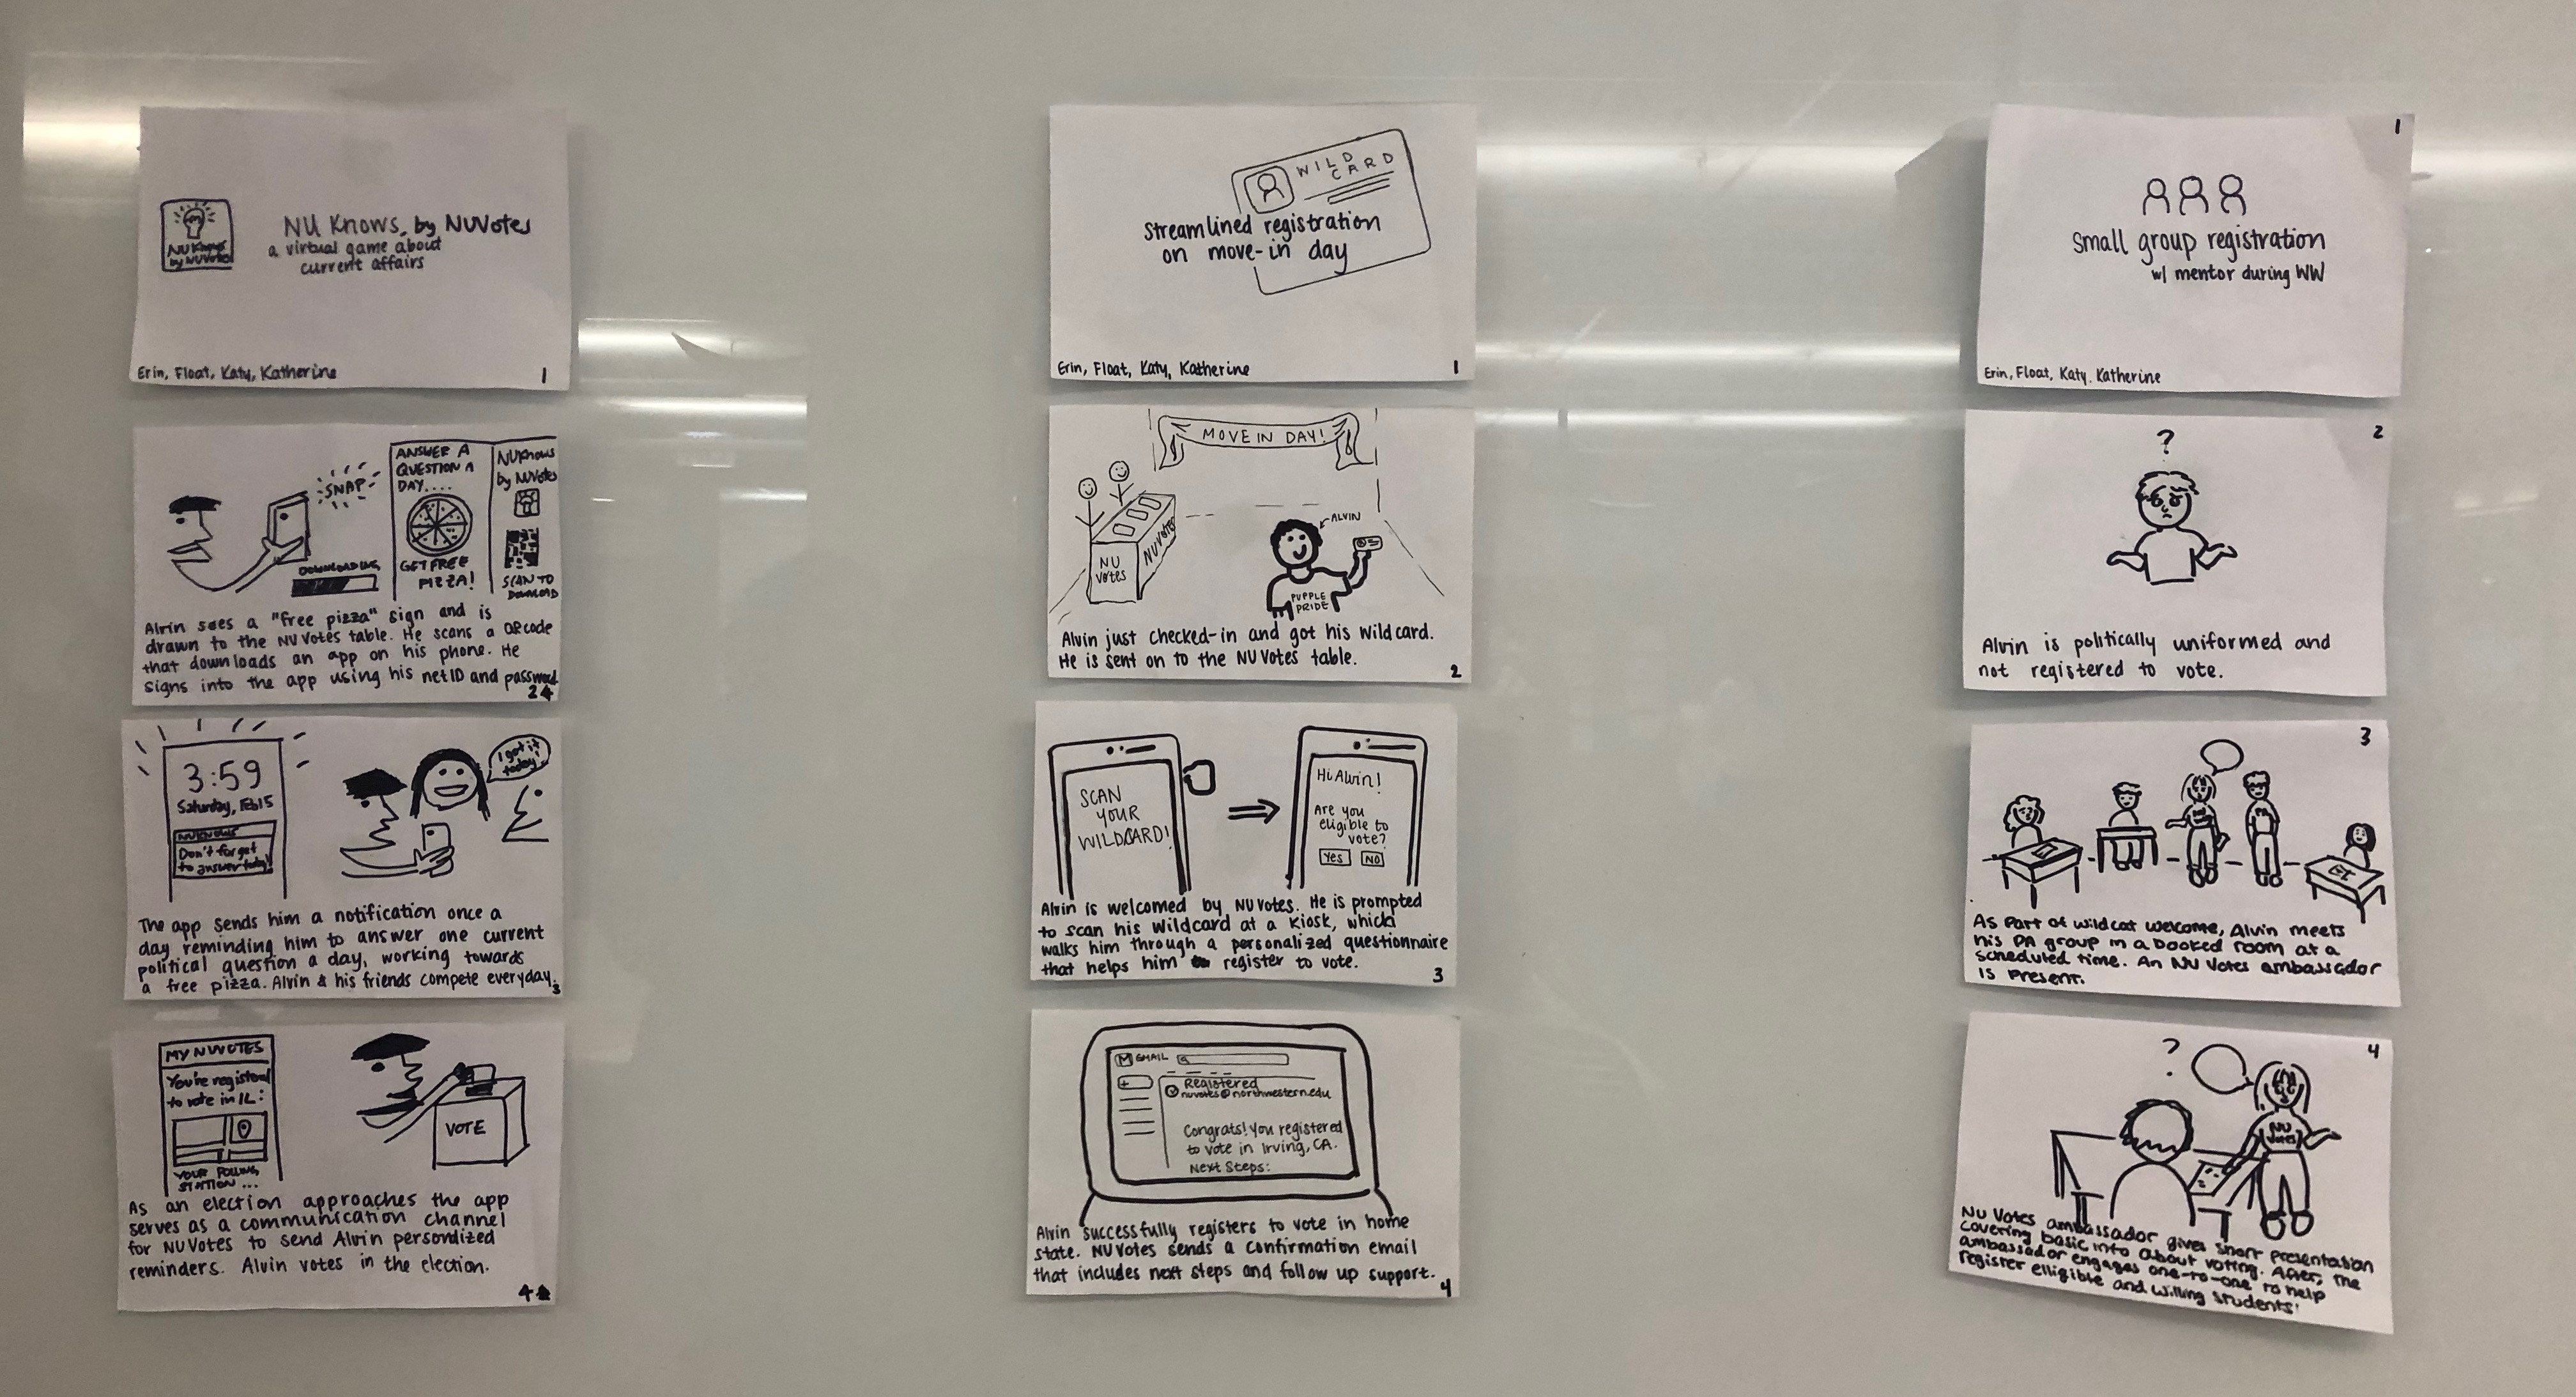 NU Knows
by NUVotes
NU Knows, by NUVotes
a virtual game about
current affairs
Erin, Float, Katy, Katherine
1
SNAP
DOWNLOADING
ANSWER A
QUESTION A
DAY....
GET FREE
PIZZA!
NUKnows
by NUVotes
SCAN TO
DOWNLOAD
Alvin sees a "free pizza" sign and is
drawn to the NU Votes table. He scans a QR code
that downloads an app on his phone. He
signs into the app using his netID and password.
2
3:59
Saturday, Feb 15
NUKNOWS
Don't forget
to answer today!
I got it
today!
The app sends him a notification once a
day reminding him to answer one current
political question a day, working towards
a free pizza. Alvin & his friends compete everyday.
3
MY NUVOTES
You're registered
to vote in IL:
YOUR POLLING
STATION ...
VOTE
As an election approaches the app
serves as a communication channel
for NUVotes to send Alvin persondized
reminders. Alvin votes in the election.
4
WILD
CARD
Streamlined registration
on move-in day
Erin, Float, Katy, Katherine
1
MOVE IN DAY!
NU
Votes
NUVotes
ALVIN
PURPLE
PRIDE
Alvin just checked-in and got his Wildcard.
He is sent on to the NU Votes table.
2
SCAN
YOUR
WILDCARD!
Hi Alvin!
Are you
eligible to
vote?
Yes
NO
Alvin is welcomed by NU Votes. He is prompted
to scan his Wildcard at a Kiosk, which
walks him through a personalized questionnaire
that helps him register to vote.
3
M GMAIL
+
Registered
nuvotes@northwestern.edu
Congrats! You registered
to vote in Irving, CA.
Next Steps:
Alvin successfully registers to vote in home
state. NU Votes sends a confirmation email
that includes next steps and follow up support.
4
1
Small group registration
w/ mentor during WW
Erin, Float, Katy, Katherine
2
?
Alvin is politically uniformed and
not registered to vote.
3
As part of Wildcat Welcome, Alvin meets
his PA group in a booked room at a
scheduled time. An NU Votes ambassador
is present.
4
?
NU
Votes
NU Votes ambassador gives short presentation
covering basic info about voting. After, the
ambassador engages one-to-one to help
register elligible and willing students.